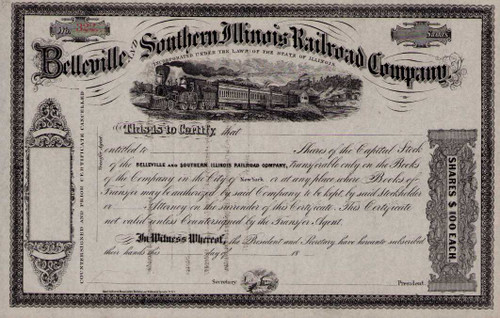 No.
Shares
Belleville AND Southern Illinois Railroad Company.
INCORPORATED UNDER THE LAWS OF THE STATE OF ILLINOIS.
This is to Certify, that
entitled to Shares of the Capital Stock
of the BELLEVILLE AND SOUTHERN ILLINOIS RAILROAD COMPANY, Transferable only on the Books
of the Company in the City of New York or at any place where Books of
Transfer may be authorized by said Company to be kept, by said Stockholder
or Attorney on the surrender of this Certificate. This Certificate
not valid unless Countersigned by the Transfer Agent.
In Witness Whereof, the President and Secretary have hereunto subscribed
their hands this day of 18
Secretary President
COUNTERSIGNED AND PRIOR CERTIFICATE CANCELLED
Transfer Agent
SHARES $ 100 EACH.